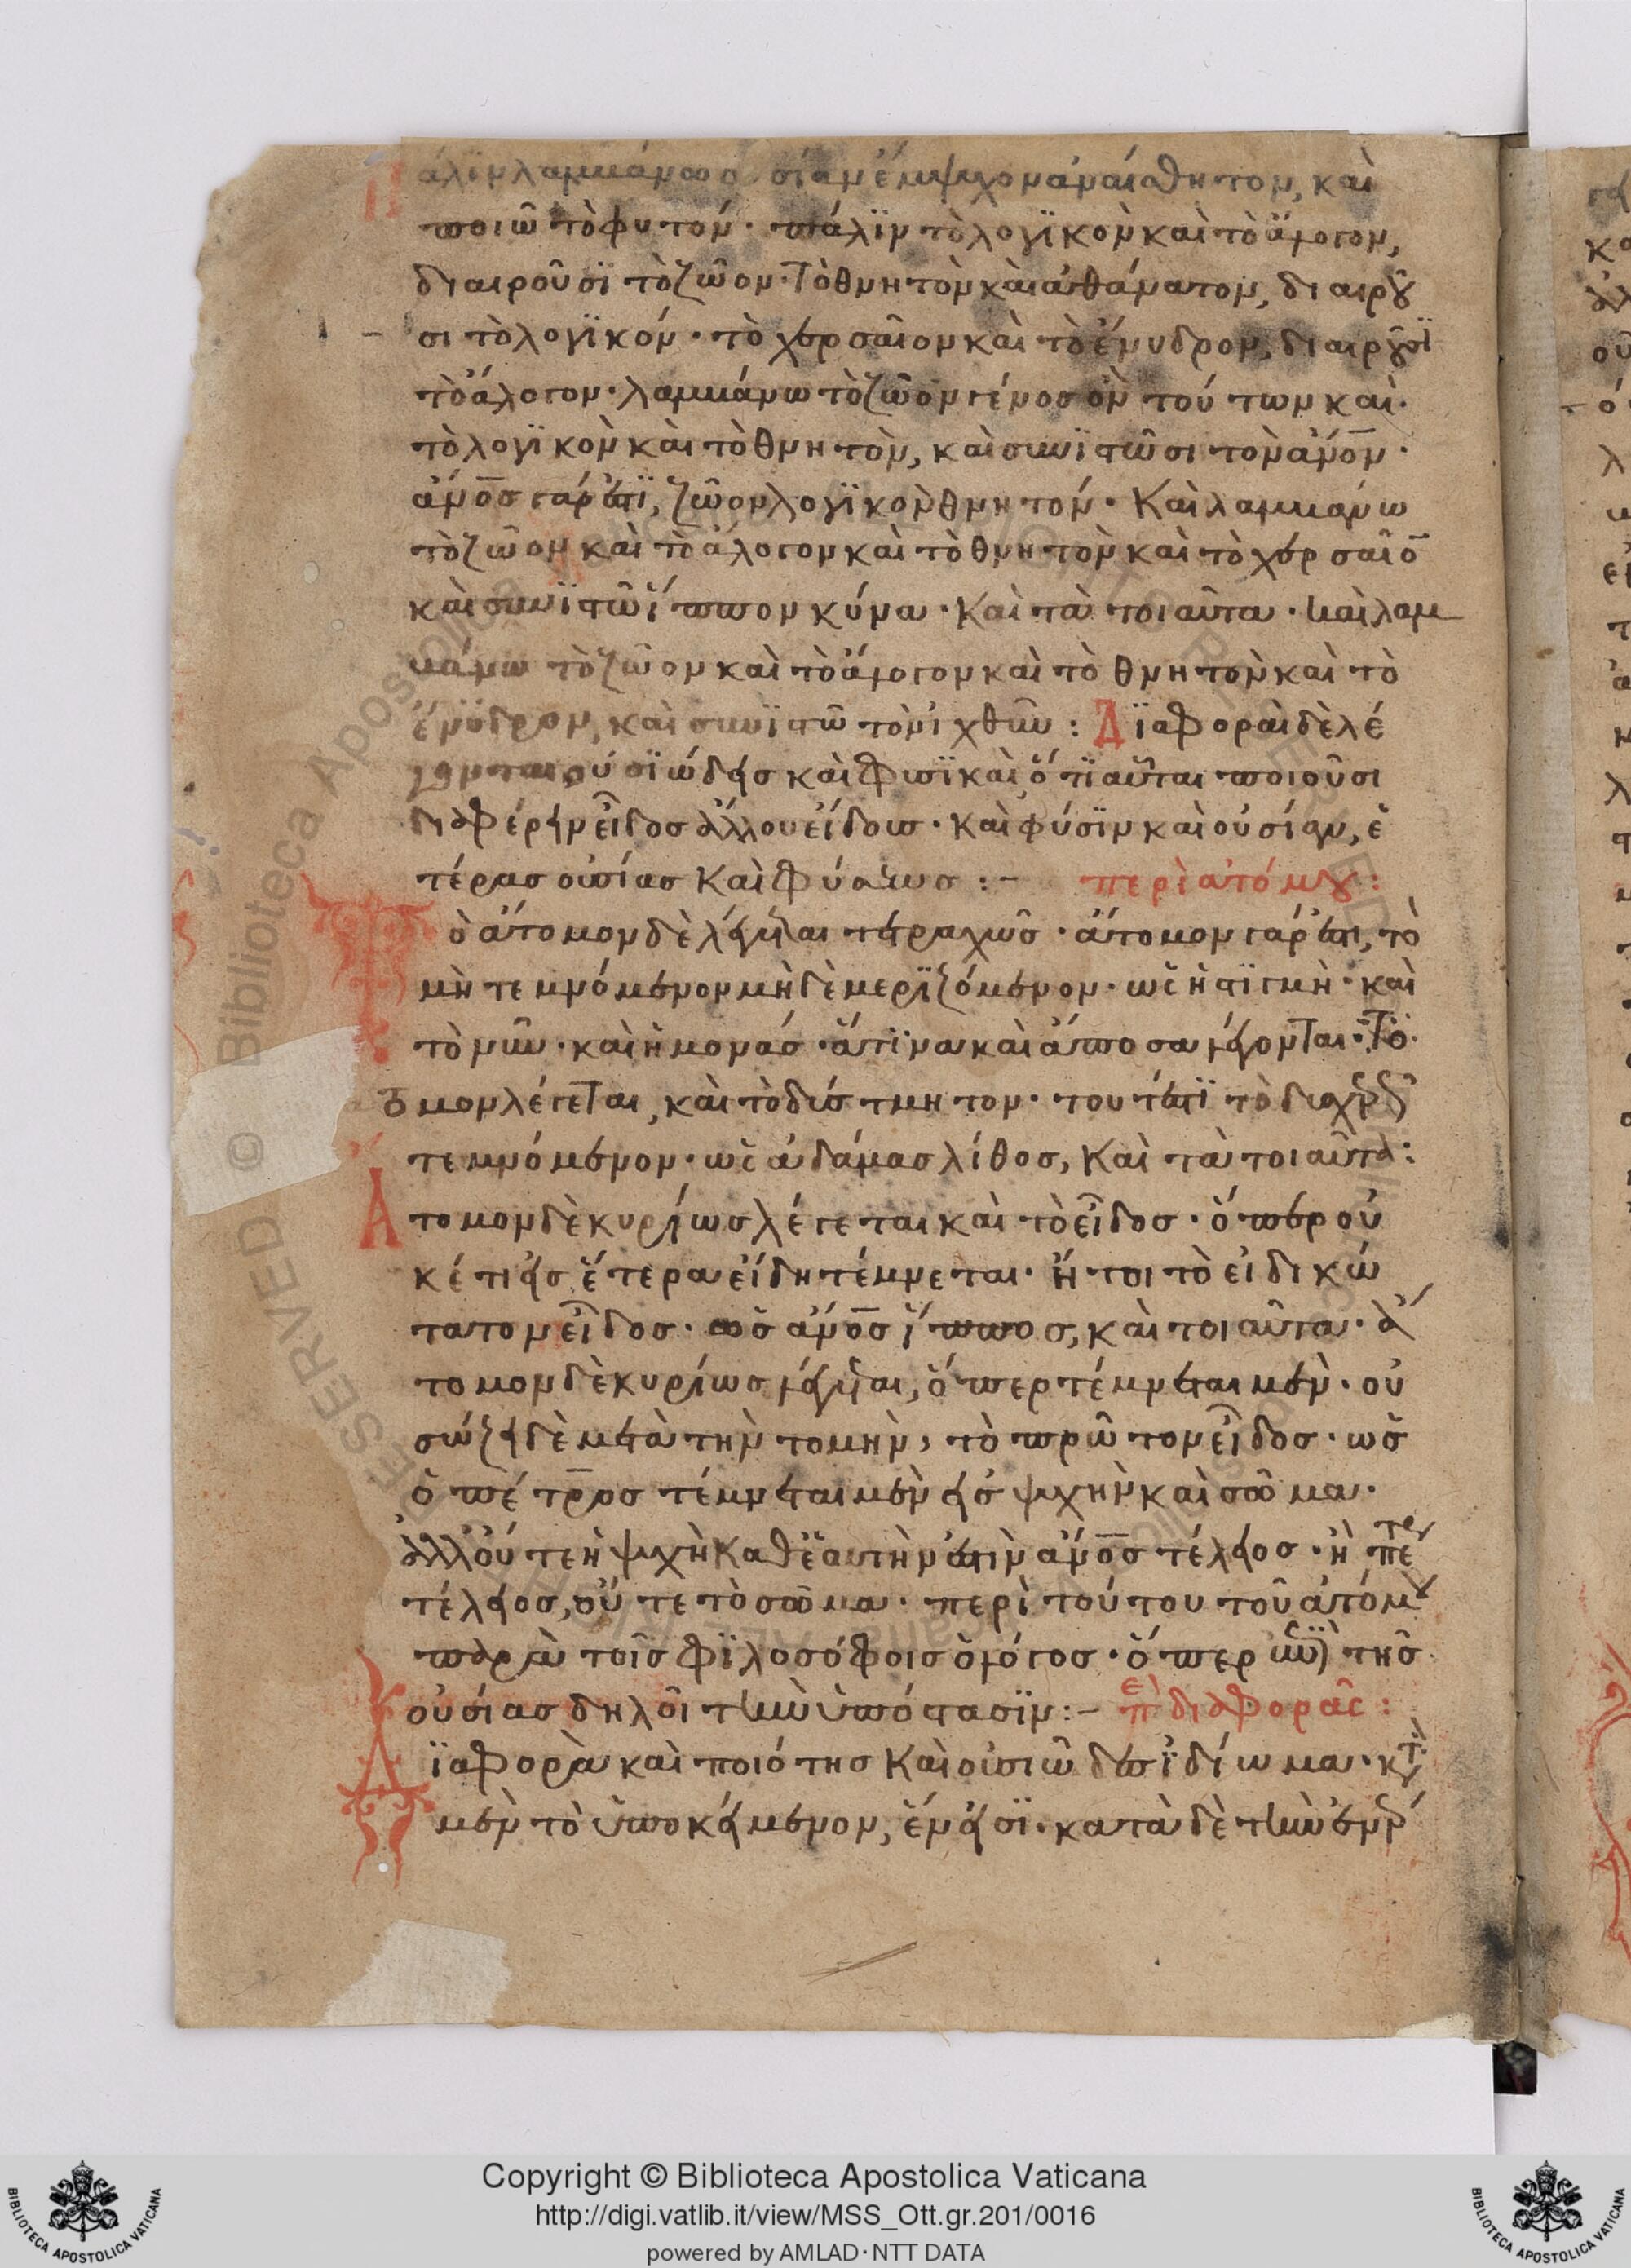 Πάλιν λαμβάνω οὐσίαν ἔμψυχον ἀναίσθητον, καὶ
ποιῶ τὸ φυτόν· πάλϊν τὸ λογϊκὸν καὶ τὸ ἄλογον,
διαιροῦσϊ τὸ ζῶον· Τὸ θνητὸν καὶ ἀθάνατον, διαιροῦ
σι τὸ λογϊκόν· τὸ χερσαῖον καὶ τὸ ἔνυδρον, διαιροῦσϊ
τὸ ἄλογον· λαμβάνω τὸ ζῶον γένος ὂν τούτων καὶ·
τὸ λογϊκὸν καὶ τὸ θνητὸν, καὶ συνϊστῶσι τὸν ἄνο̅ν·
ἄνο̅ς γάρ ἐστϊ, ζῶον λογϊκὸν θνητόν· Καὶ λαμβάνω
τὸ ζῶον καὶ τὸ ἄλογον καὶ τὸ θνητὸν καὶ τὸ χερσαῖο̅
καὶ συνϊστῶ ἵππον κύνα· Καὶ τὰ τοιαῦτα· καὶ λαμ
βάνω τὸ ζῶον καὶ τὸ ἄλογον καὶ τὸ θνητὸν καὶ τὸ
ἔνϋδρον, καὶ συνϊστῶ τὸν ἰχθῦν: Δϊαφοραὶ δὲ λέ
γονται οὐσϊώδεις καὶ φυσϊκαὶ, ὅτϊ αὗται ποιοῦσι
διαφέρειν εἶδος ἄλλου εἴδους· Καὶ φύσϊν καὶ οὐσίαν, ἑ
τέρας οὐσίας Καὶ φύσεως:– περὶ ἀτόμου:
Τὸ ἄτομον δὲ λέγεται τετραχῶς· ἄτομον γάρ ἐστι, τὸ
μὴ τεμνόμενον μὴδὲ μερϊζόμενον· ὡς ἡ στϊγμὴ· καὶ
τὸ νῦν· καὶ ἡ μονάς· ἅτϊνα καὶ ἄποσα λέγονται· Ἄτο
μον λέγεται, καὶ τὸ δύστμητον· τουτέστϊ τὸ δυσχερῶς
τεμνόμενον· ὡς ἀδάμας λίθος, Καὶ τὰ τοιαῦτα:
Ἄτομον δὲ κυρίως λέγεται καὶ τὸ εἶδος· ὅπερ οὐ
κέτι εἰς ἕτερα εἴδη τέμνεται· ἤτοι τὸ εἰδικώ
τατον εἶδος· ὡς ἄνο̅ς ἵππος, καὶ τοιαῦτα· ἄ
τομον δὲ κυρίως λέγεται, ὅπερ τέμνεται μὲν· οὐ
σώζει δὲ μετὰ τὴν τομὴν, τὸ πρῶτον εἶδος· ὡς
ὁ πέτρος τέμνεται μὲν εἰς ψυχὴν καὶ σῶμα·
ἀλλ' οὔτε ἡ ψυχὴ καθ' ἑαυτὴν ἐστὶν ἄνο̅ς τέλειος· ἢ πέτρο
τέλειος, οὔτε τὸ σῶμα· περὶ τούτου τοῦ ἀτόμου
παρὰ τοῖς φϊλοσόφοις ὁ λόγος· ὅπερ ἐπὶ τῆς
οὐσίας δηλοῖ τὴν ὑπόστασϊν:– περὶ διαφορᾶς:
Δϊαφορὰ καὶ ποιότης Καὶ οὐσιῶδες ἰδίωμα· κατὰ
μὲν τὸ ὑποκείμενον, ἕν εἰσϊ· κατὰ δὲ τὴν ἐνερ